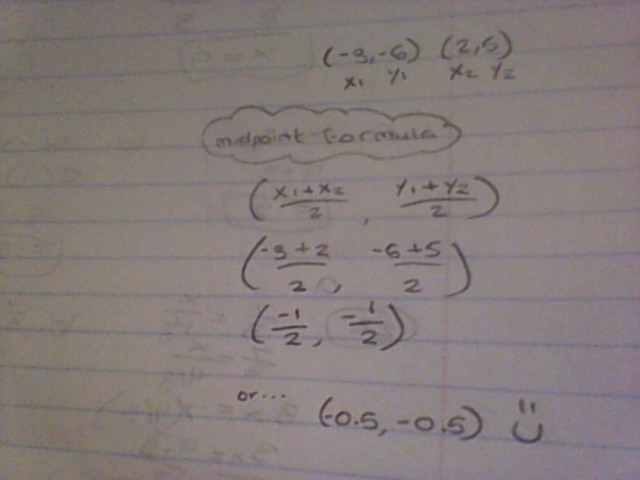 (-3,-6) (2,5)
x₁ y₁ x₂ y₂
midpoint formula
(x₁+x₂/2, y₁+y₂/2)
(-3+2/2, -6+5/2)
(-1/2, -1/2)
or... (-0.5, -0.5)